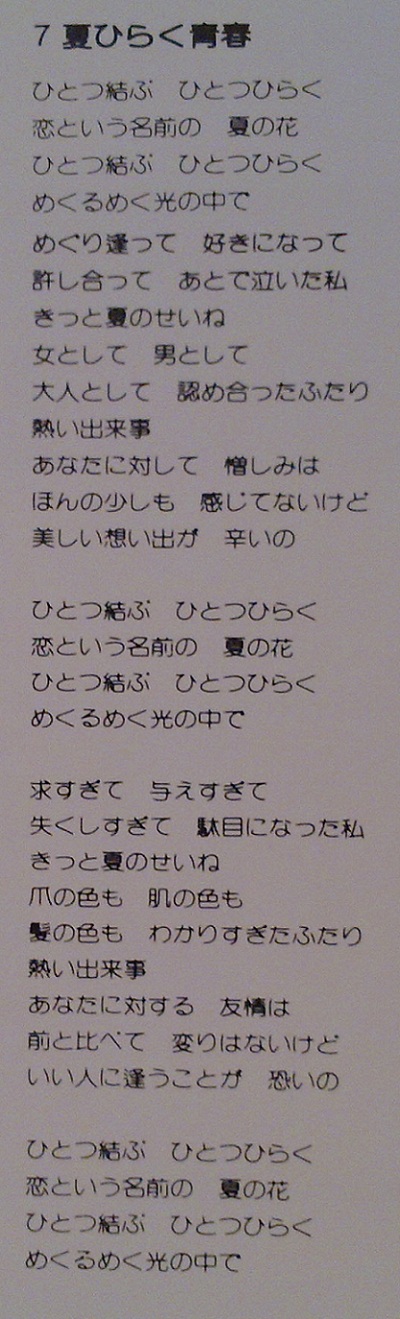 7 夏ひらく青春
ひとつ結ぶ　ひとつひらく
恋という名前の　夏の花
ひとつ結ぶ　ひとつひらく
めくるめく光の中で
めぐり逢って　好きになって
許し合って　あとで泣いた私
きっと夏のせいね
女として　男として
大人として　認め合ったふたり
熱い出来事
あなたに対して　憎しみは
ほんの少しも　感じてないけど
美しい想い出が　辛いの
ひとつ結ぶ　ひとつひらく
恋という名前の　夏の花
ひとつ結ぶ　ひとつひらく
めくるめく光の中で
求すぎて　与えすぎて
失くしすぎて　駄目になった私
きっと夏のせいね
爪の色も　肌の色も
髪の色も　わかりすぎたふたり
熱い出来事
あなたに対する　友情は
前と比べて　変りはないけど
いい人に逢うことが　恐いの
ひとつ結ぶ　ひとつひらく
恋という名前の　夏の花
ひとつ結ぶ　ひとつひらく
めくるめく光の中で